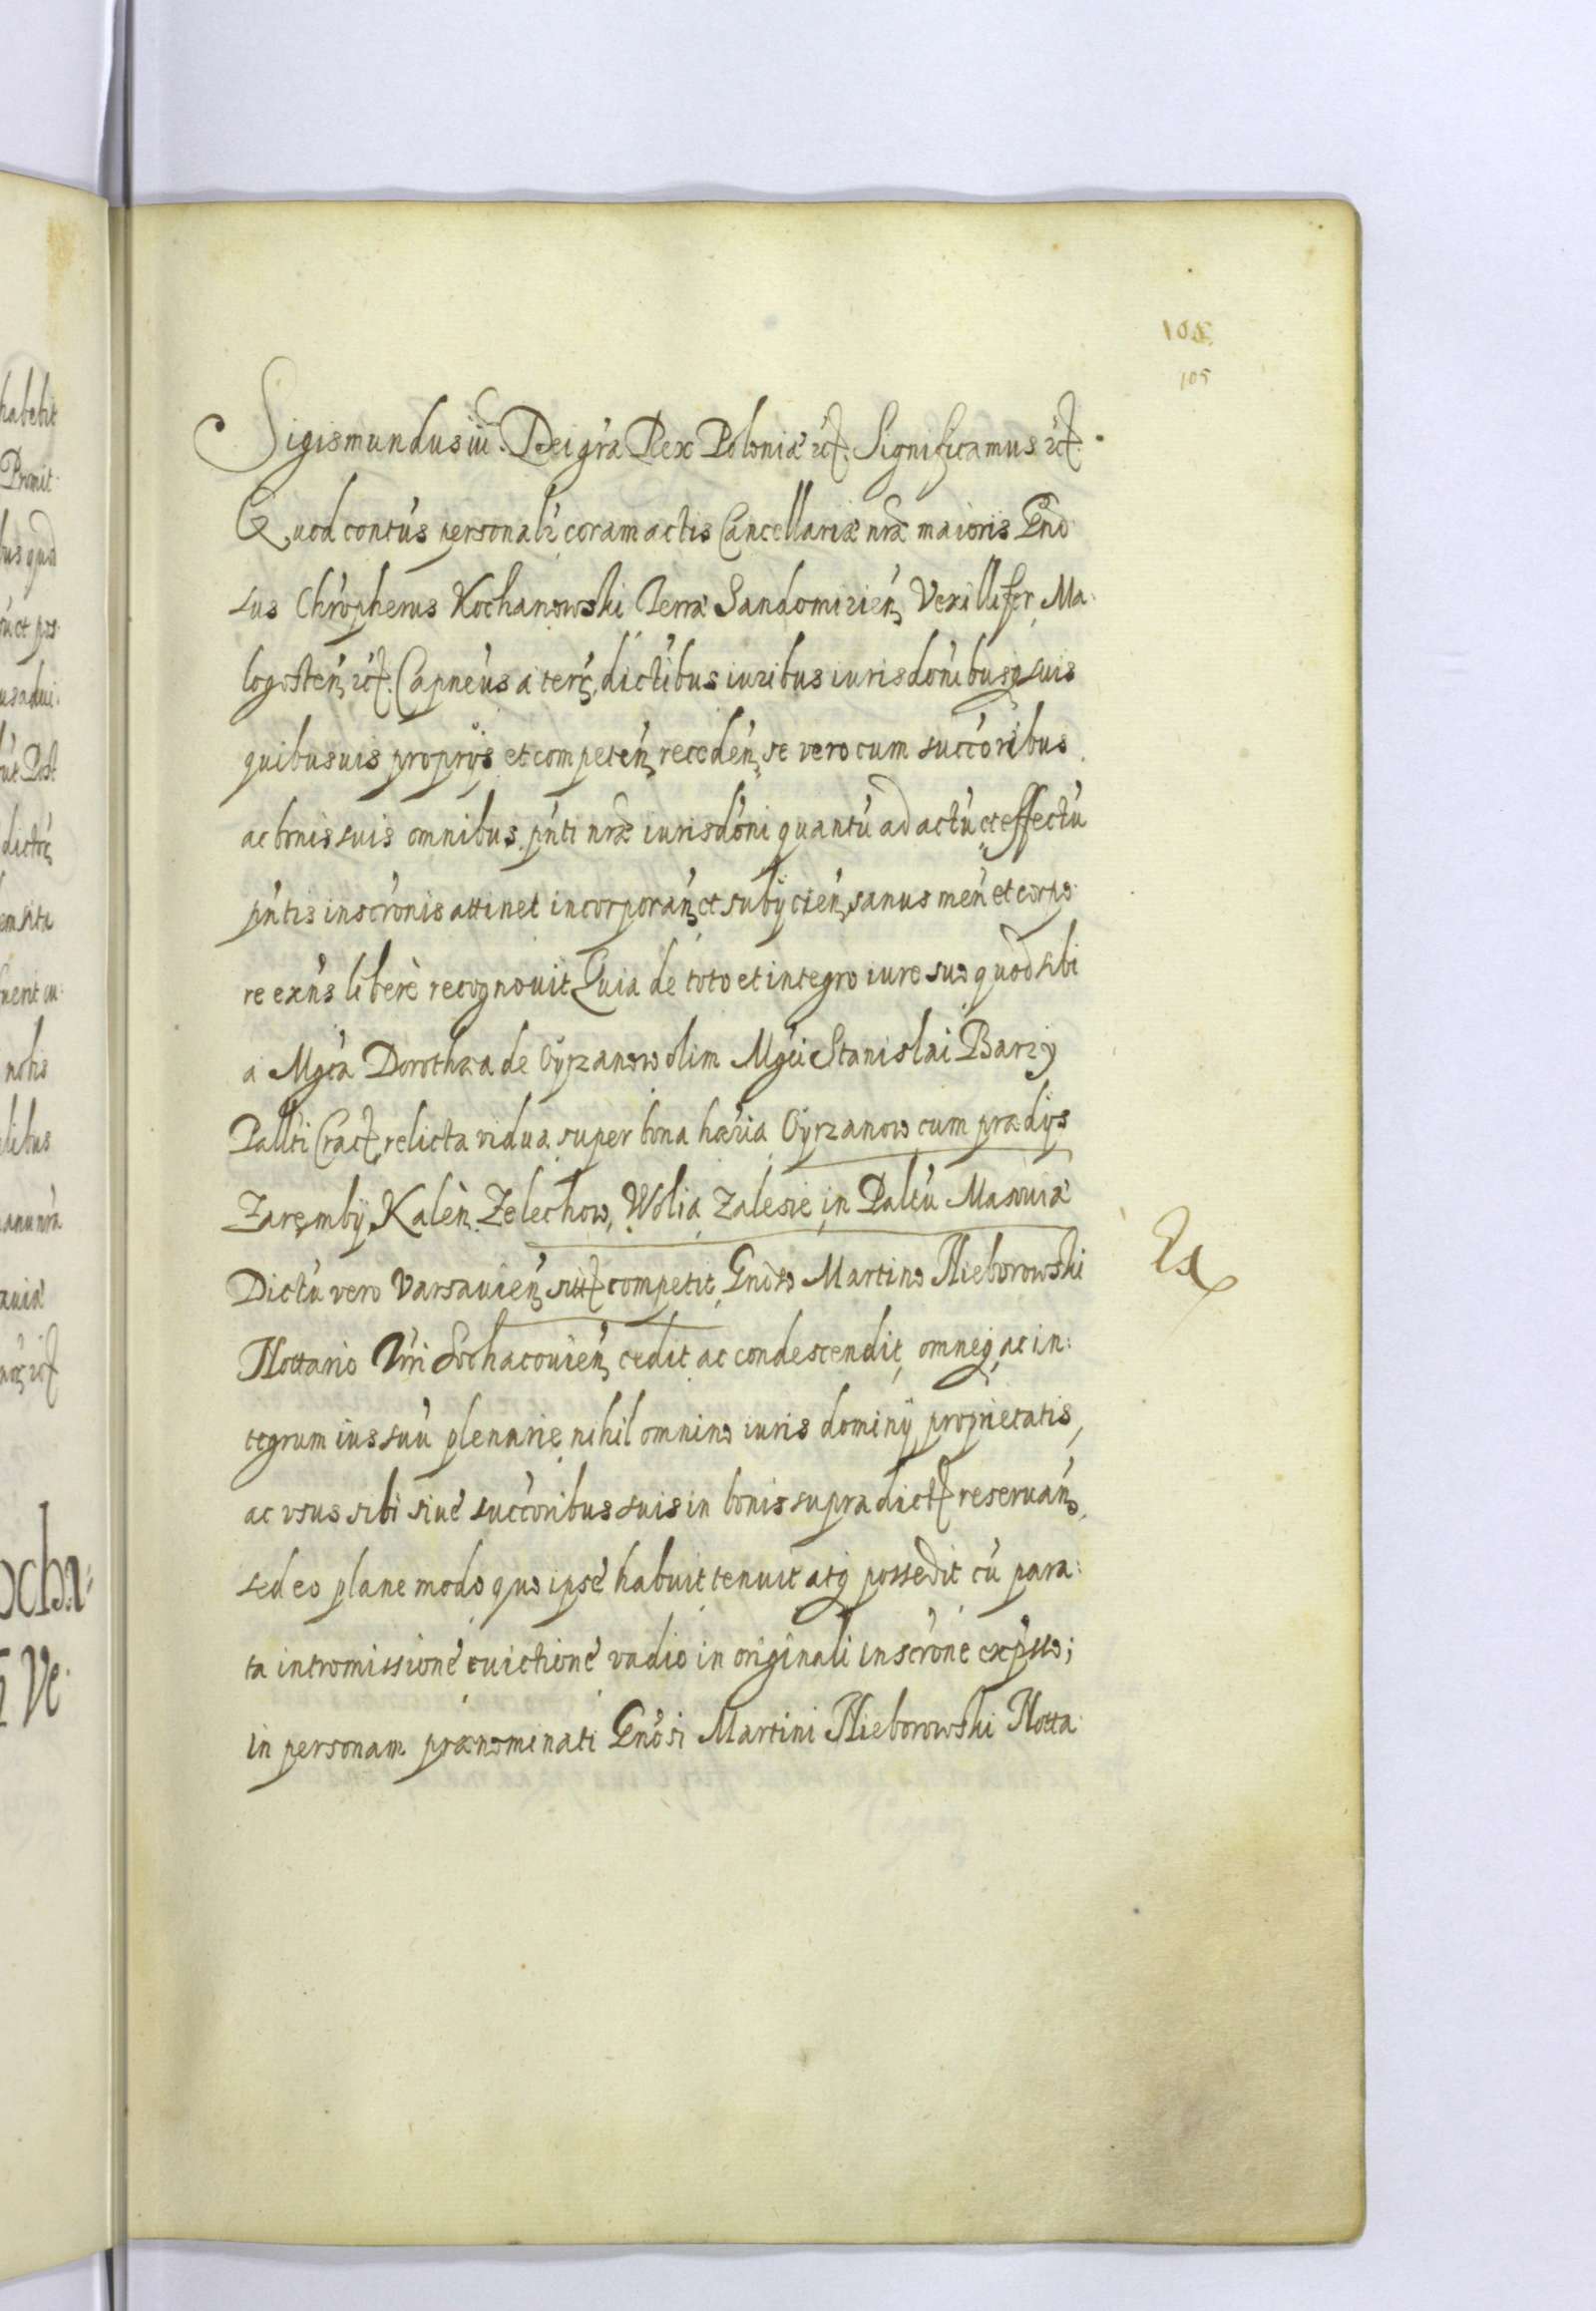 105
Sigismundus iii. Dei gr̃a Rex Poloniæ etc. Significamus etc.
Quod contũs personalr̃ coram actis Cancellariæ nr̃æ maioris Gnõ
sus Chrõpherus Kochanowski Terræ Sandomirien̄ Vexillifer, Ma:
logosten̄ etc. Capneũs a terr̃, dictĩbus iuribus iurisdõnibusq suis
quibusuis proprijs et competen̄ receden̄, se vero cum succõribus
ac bonis suis omnibus pñti nr̃æ iurisdõni quantũ ad actũ et effectũ
pñtis inscrõnis attinet incorporan̄ et subijcien̄ sanus men̄ et corpo
re exñs liberè recognouit Quia de toto et integro iure suo quod sibi
a Mgcã Dorothæa de Oyrzanow olim Mgci Stanislai Barzy
Palłti Crac relicta vidua super bona hæria Oyrzanow cum prædijs
Zarẹmby, Kalèn, Zelechow, Wolia, Zalesie in Palt̃u Masouiæ
Dictũ vero Varsauien̄ sitt competit, Gnõso Martino Nieborowski
Nottario Trri Sochacouien̄ cedit ac condescendit, omneq ac in:
tegrum ius suũ plenarie nihil omnino iuris dominij proprietatis,
ac vsus sibi siue succõribus suis in bonis supradict reseruan̄,
sed eo plane modo quo ipse habuit tenuit atq possedit cũ para:
ta intromissione euictione vadio in originali inscrõne exp̃sso;
in personam prænominati Gnõsi Martini Nieborowski Notta: